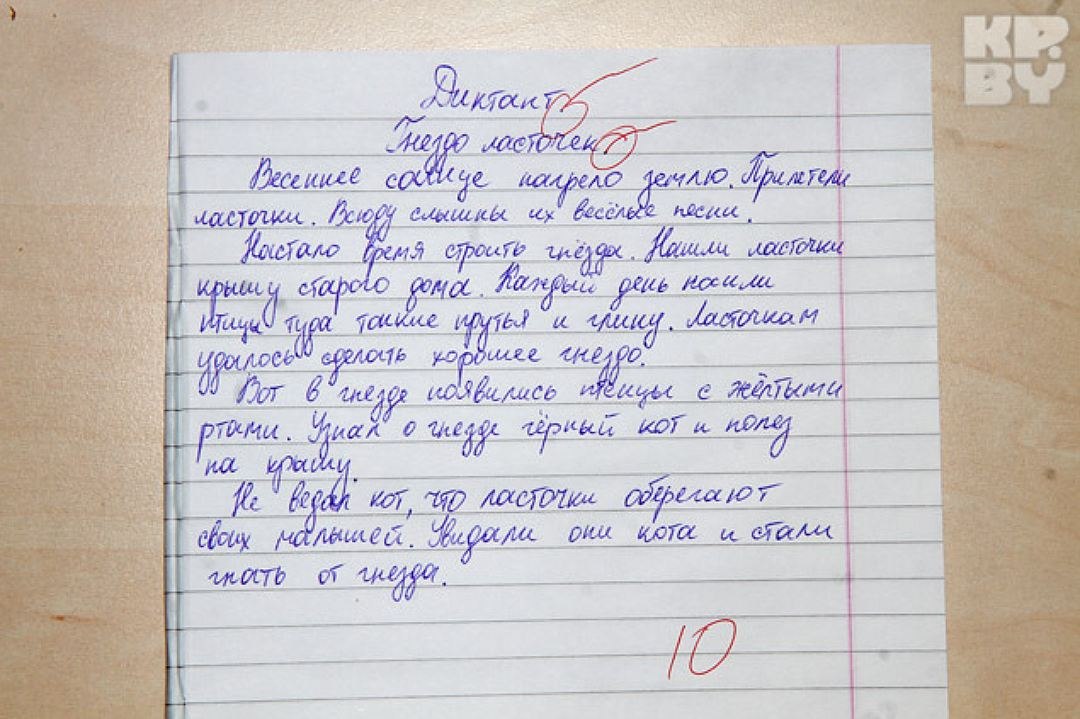 KP.
BY
Диктант
Гнездо ласточек
Весеннее солнце нагрело землю. Прилетели
ласточки. Всюду слышны их весёлые песни.
Настало время строить гнёзда. Нашли ласточки
крышу старого дома. Каждый день носили
птицы туда тонкие прутья и глину. Ласточкам
удалось сделать хорошее гнездо.
Вот в гнезде появились птенцы с жёлтыми
ртами. Узнал о гнезде чёрный кот и полез
на крышу.
Не ведал кот, что ласточки оберегают
своих малышей. Увидали они кота и стали
гнать от гнезда.
10